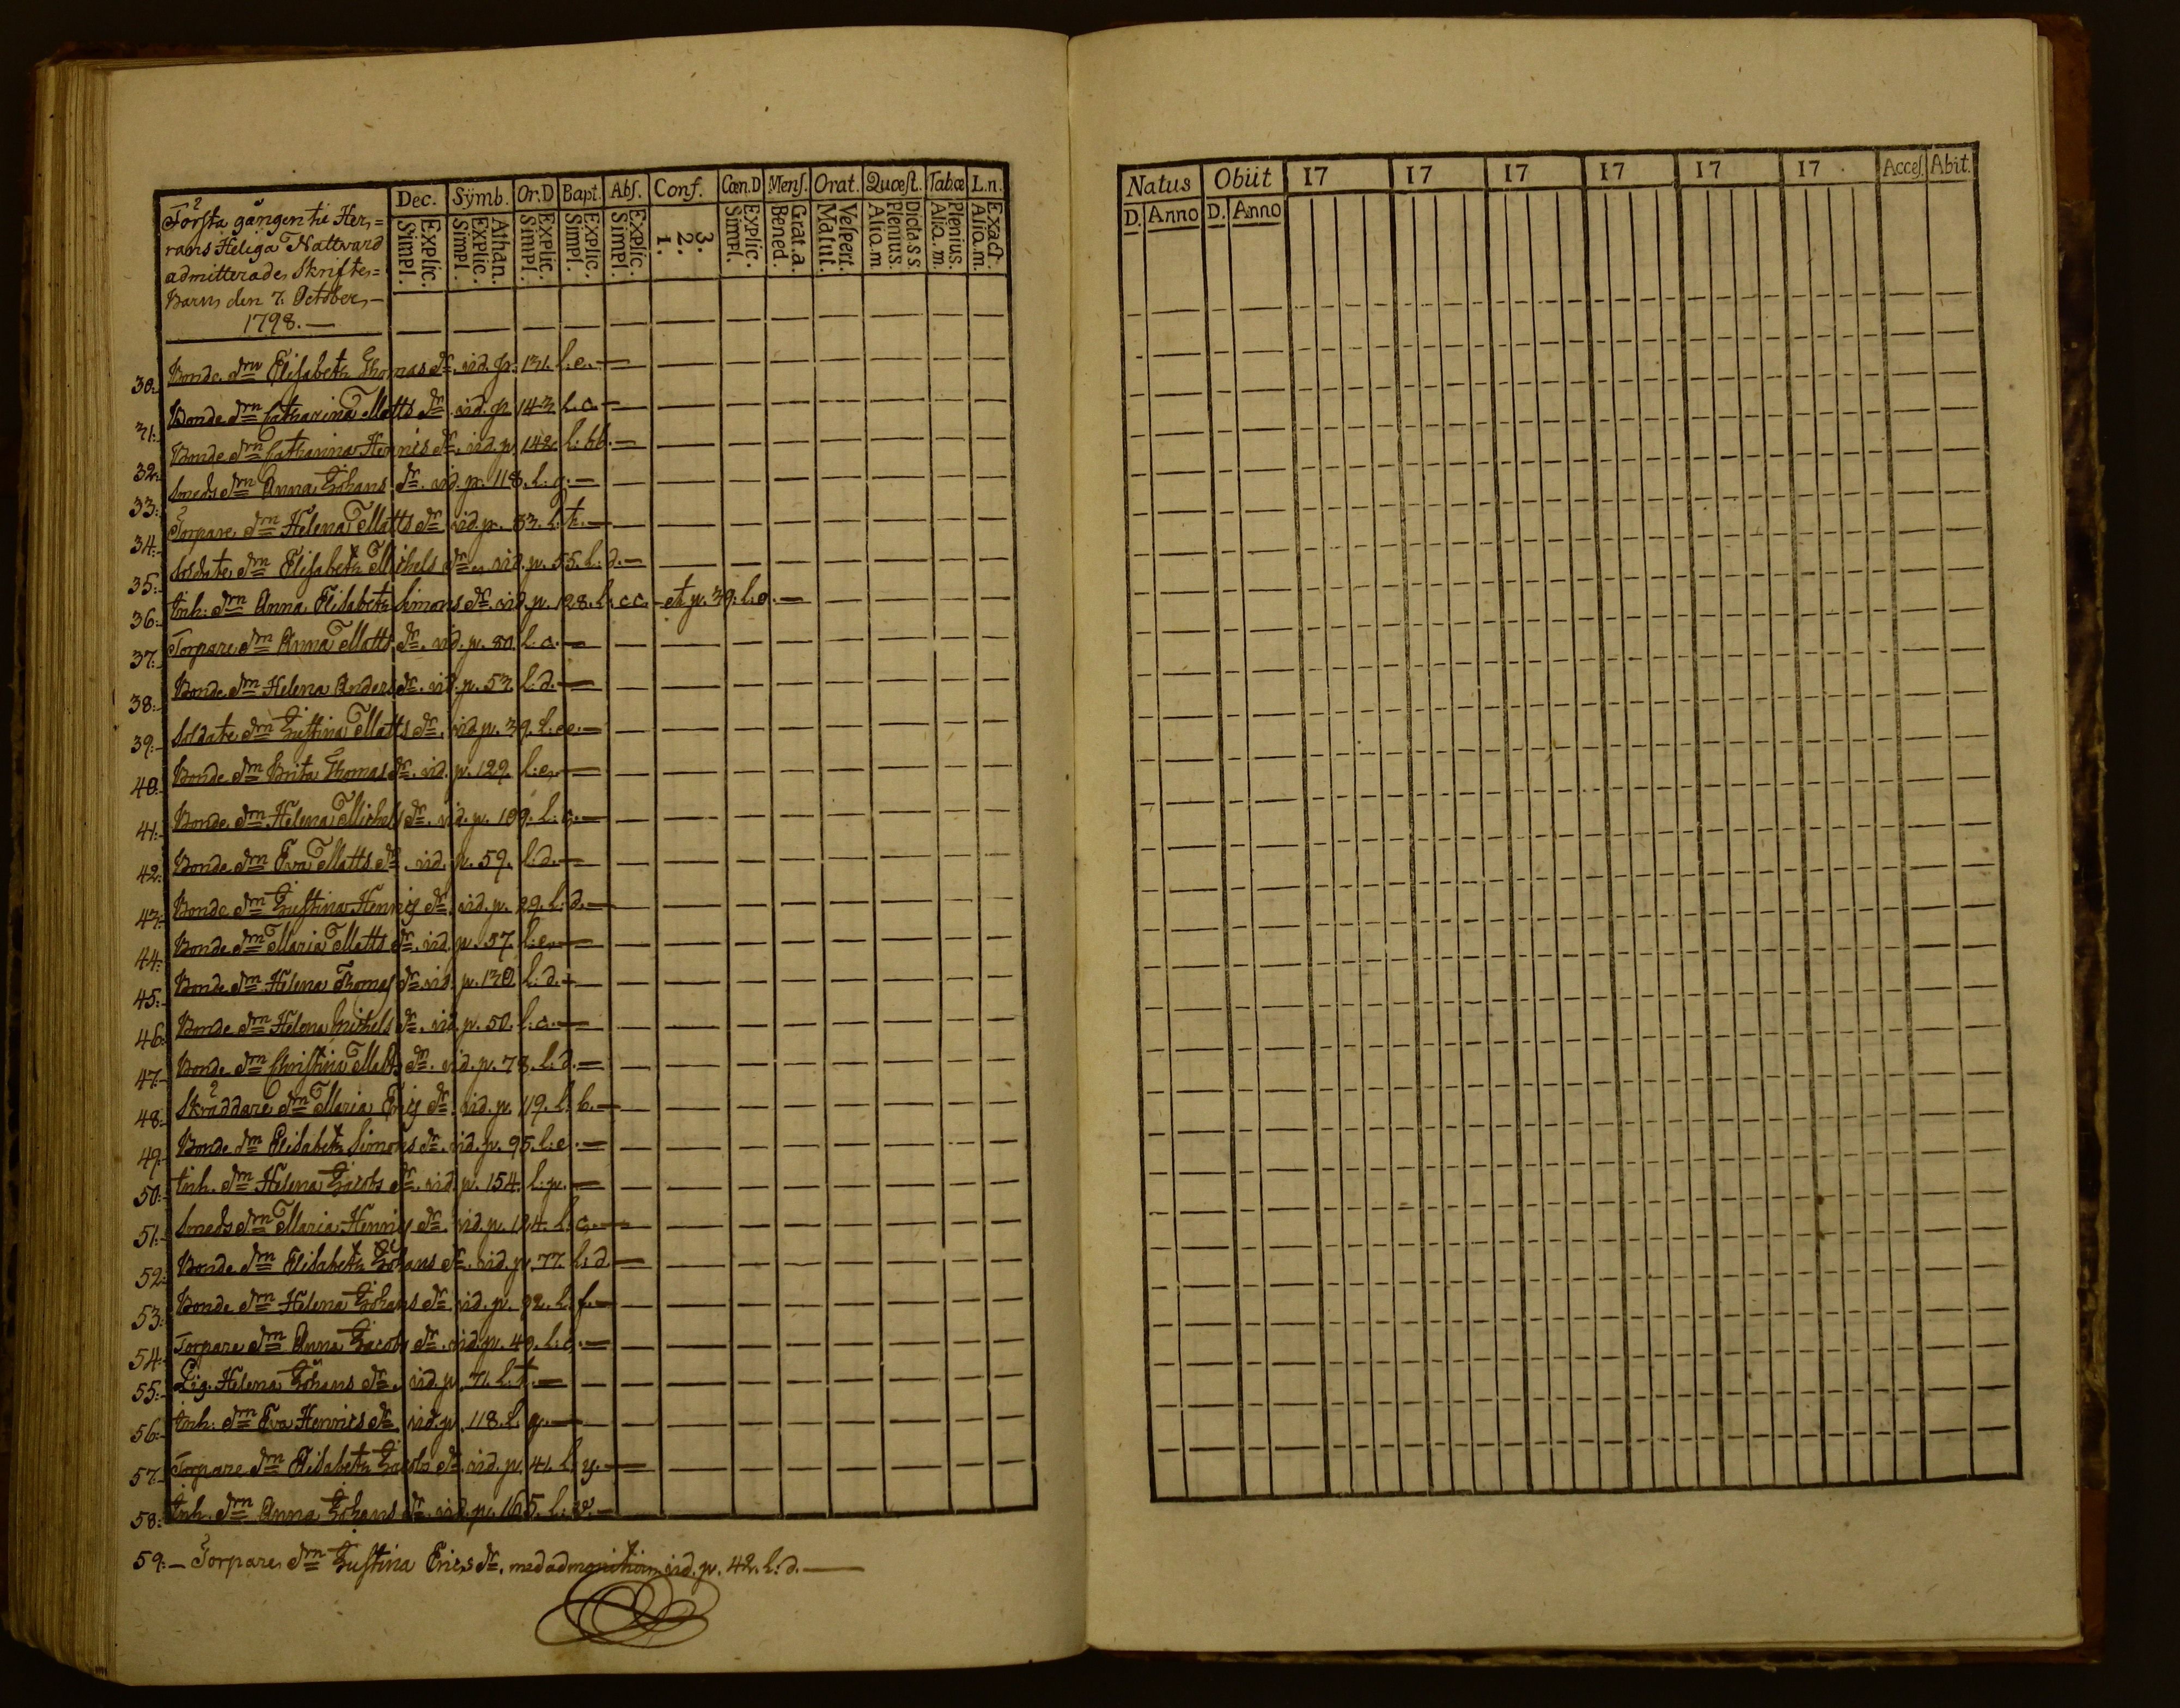 Första gången til Her,=
rans Heliga Nattward
admitterade Skrifte,=
Barn, den 7. October,-
1798.-
Dec. Symb. Or.D Bapt. Abs. Conf. Cœn.D Mens. Orat. Quæst. Tab.œ L.n.
Explic. Simpl. Athan. Explic. Simpl. Explic. Simpl. Explic. Simpl. Explic. Simpl. 3. 2. 1. Explic. Simpl. Grat.a. Bened. Vespert. Matut. Dicta.s s. Plenius. Aliq.m Plenius. Aliq.m. Exact. Aliq.m.
30:- Bonde drn Elisabeth Thomas dr. vid. p. 131. l.e.-
31:- Bonde drn Catharina Matts dr. vid. p. 143. l.c.-
32:- Bonde drn Catharina Henrics dr. vid. p. 142. l: bb.-
33:- Smeds drn Anna Johans dr. vid. p. 118. l. g.-
34:- Torpare drn Helena Matts dr. vid. p. 83. l. t.-
35:- Soldate drn Elisabeth Michels dr. vid. p. 55. l: d.-
36:- Inh: drn Anna Elisabeth Simons dr. vid. p. 128. l. cc. - et p. 39. l.o.-
37:- Torpare drn Anna Matts dr. vid. p. 80. l: c.-
38:- Bonde drn Helena Anders dr. vid. p. 53. l: d.-
39:- Soldate drn Justina Matts dr. vid. p. 39. l. ee.-
40:- Bonde drn Brita Thomas dr. vid. p. 129. l: e.-
41:- Bonde drn Helena Michels dr. vid. p. 109. l: c.-
42:- Bonde drn Eva Matts dr. vid. p. 59. l: d.-
43:- Bonde drn Justina Henrics dr. vid. p. 29. l: d.-
44:- Bonde drn Maria Matts dr. vid. p. 57. l: e.-
45:- Bonde drn Helena Thomas dr. vid. p. 130. l: d.-
46:- Bonde drn Helena Michels dr. vid. p. 50. l: c.-
47:- Bonde drn Christina Matts dr. vid. p. 78. l: d.-
48:- Skräddare drn Maria Erics dr. vid. p. 119. l. b.-
49:- Bonde drn Elisabeth Simons dr. vid. p. 95. l: e.-
50:- Inh. drn Helena Jacobs dr. vid. p. 154. l: p.-
51:- Smeds drn Maria Henrics dr. vid. p. 124. l. c.-
52:- Bonde drn Elisabeth Johans dr. vid. p. 77. l: d.-
53:- Bonde drn Helena Johans dr. vid. p. 92. l. f.-
54:- Torpare drn Anna Jacobs dr. vid. p. 40. l: c.-
55:- Pig. Helena Johans dr. vid. p. 71. l. t.-
56:- Inh: drn Eva Henrics dr. vid. p. 118. l. p.-
57:- Torpare drn Elisabeth Jacobs dr. vid. p. 41. l. y.-
58:- Inh. drn Anna Johans dr. vid. p. 165. l.
59:- Torpare drn Justina Erics dr. med admonition vid. p. 42. l: d.-
Natus Obiit 17 17 17 17 17 17 Acces. Abit.
D. Anno D. Anno